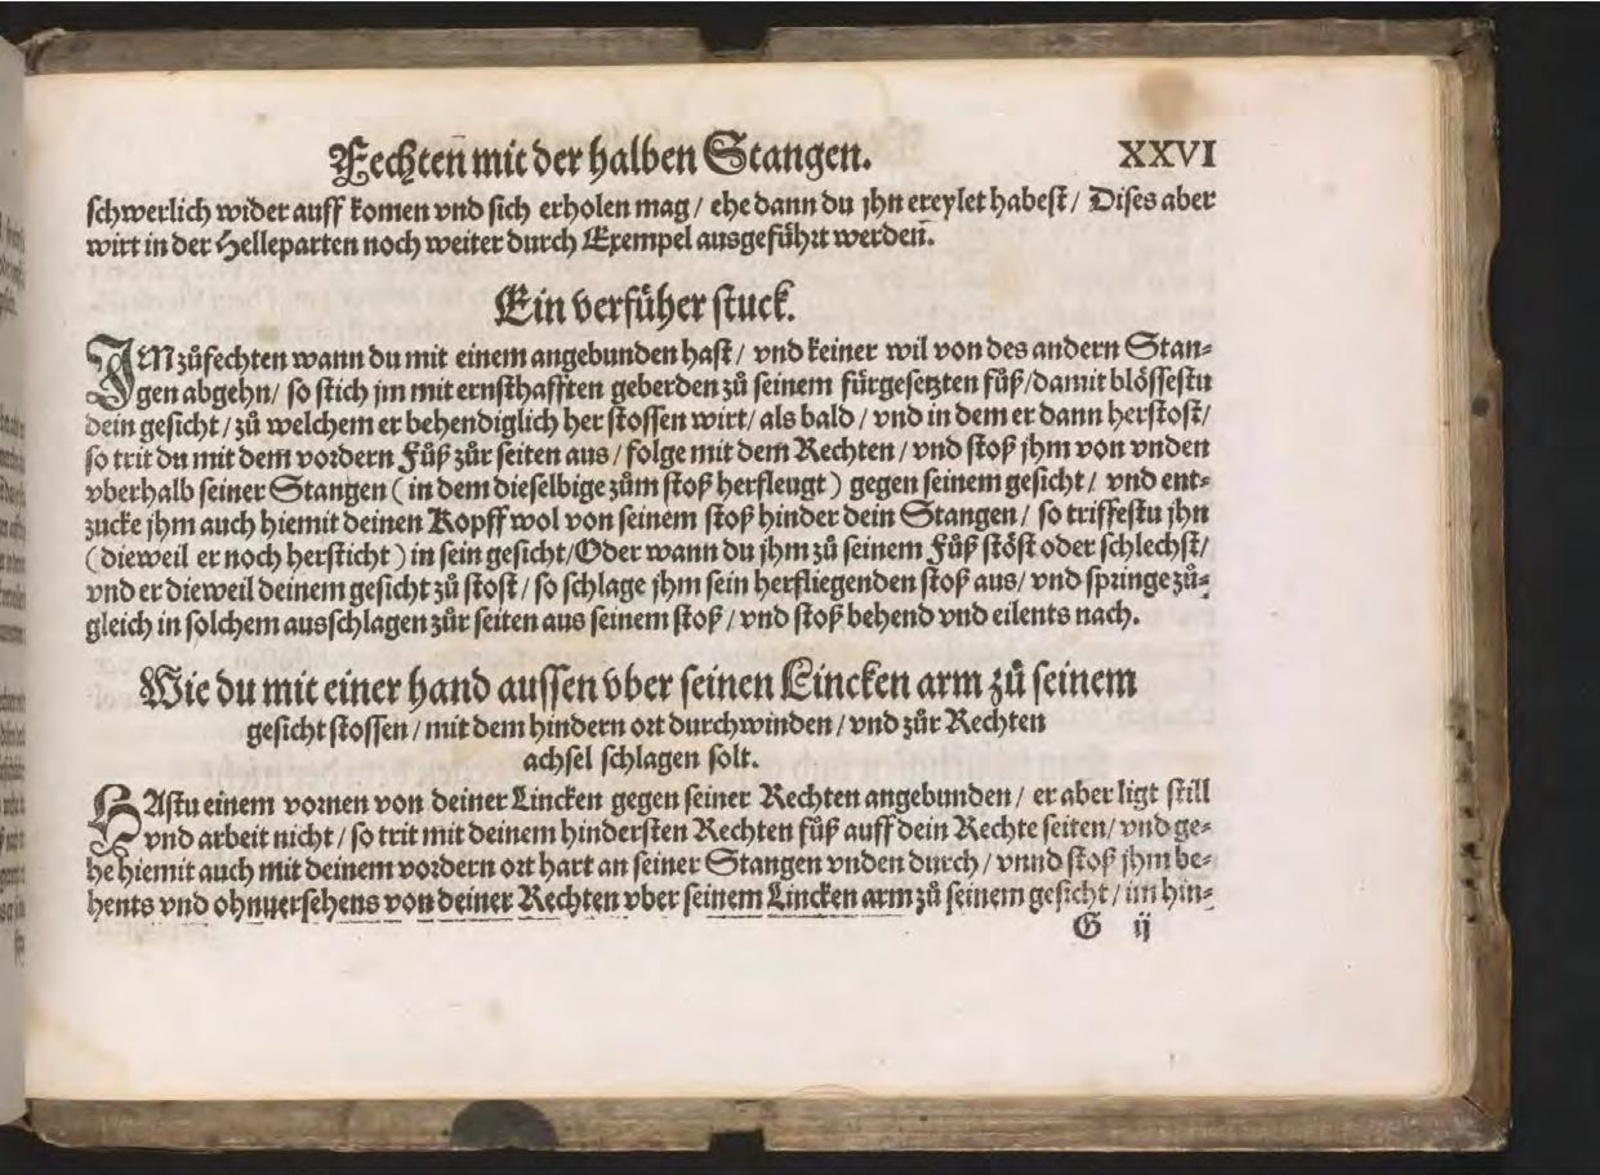 Fechten mit der halben Stangen. XXVI
schwerlich wider auff komen vnd sich erholen mag / ehe dann du jhn ereylet habest / Dises aber
wirt in der Helleparten noch weiter durch Exempel ausgeführt werden̄.
Ein verfüher stuck.
IM zůfechten wann du mit einem angebunden hast / vnd keiner wil von des andern Stan⸗
gen abgehn / so stich jm mit ernsthafften geberden zů seinem fürgesetzten fůß / damit blössestu
dein gesicht / zů welchem er behendiglich her stossen wirt / als bald / vnd in dem er dann herstost /
so trit du mit dem vordern Fůß zůr seiten aus / folge mit dem Rechten / vnd stoß jhm von vnden
vberhalb seiner Stangen (in dem dieselbige zům stoß herfleugt) gegen seinem gesicht / vnd ent⸗
zucke jhm auch hiemit deinen Kopff wol von seinem stoß hinder dein Stangen / so triffestu jhn
(dieweil er noch hersticht) in sein gesicht / Oder wann du jhm zů seinem Fůß stöst oder schlechst /
vnd er dieweil deinem gesicht zů stost / so schlage jhm sein herfliegenden stoß aus / vnd springe zů⸗
gleich in solchem ausschlagen zůr seiten aus seinem stoß / vnd stoß behend vnd eilents nach.
Wie du mit einer hand aussen vber seinen Lincken arm zů seinem
gesicht stossen / mit dem hindern ort durchwinden / vnd zůr Rechten
achsel schlagen solt.
HAstu einem vornen von deiner Lincken gegen seiner Rechten angebunden / er aber ligt still
vnd arbeit nicht / so trit mit deinem hindersten Rechten fůß auff dein Rechte seiten / vnd ge⸗
he hiemit auch mit deinem vordern ort hart an seiner Stangen vnden durch / vnnd stoß jhm be⸗
hents vnd ohnuersehens von deiner Rechten vber seinem Lincken arm zů seinem gesicht / im hin⸗
G ij